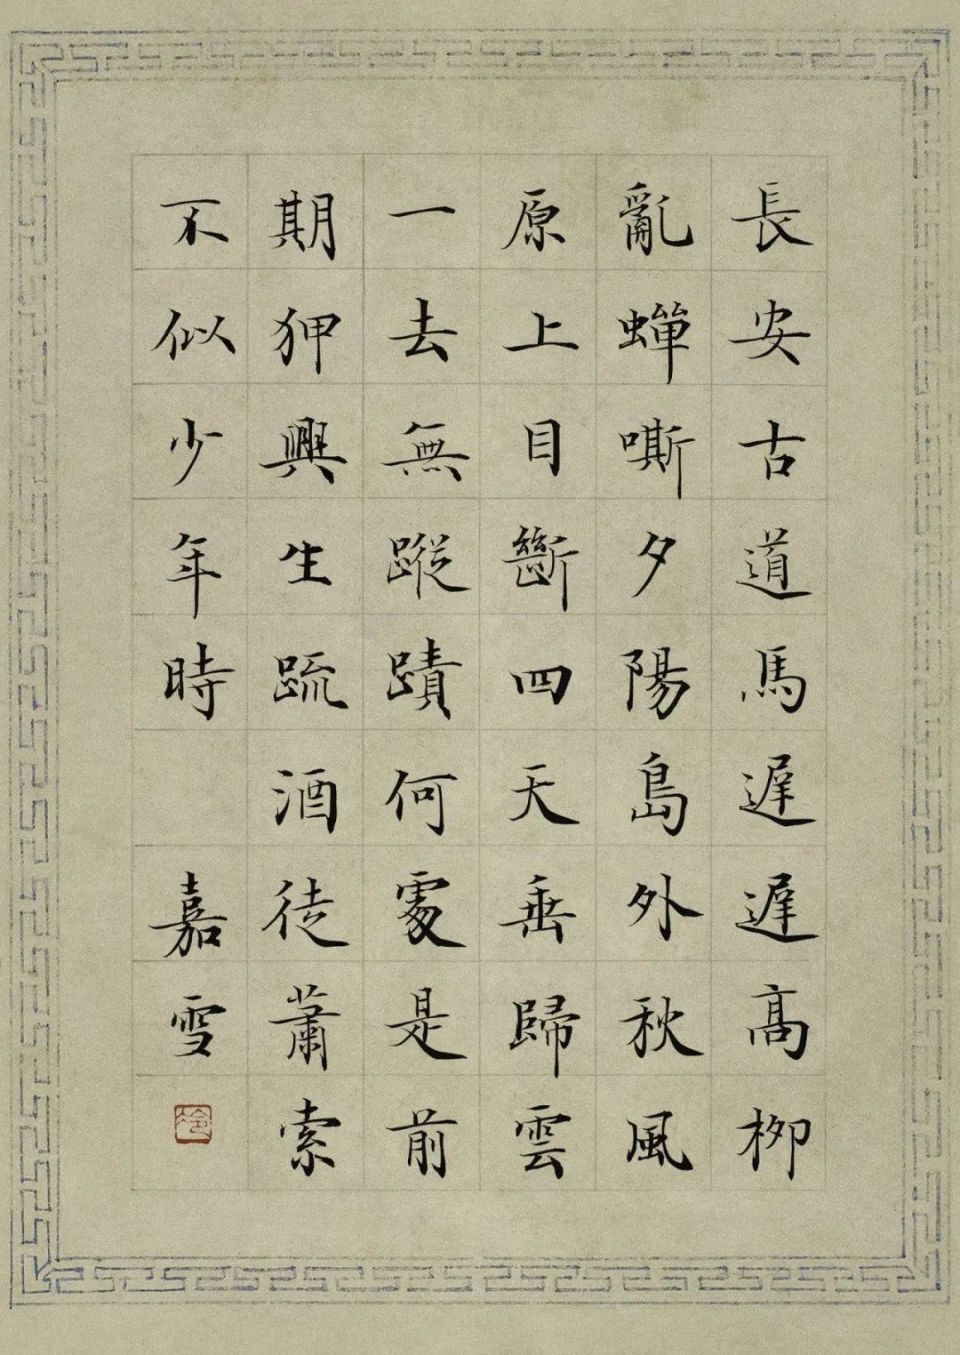 長安古道馬遲遲高柳
亂蟬嘶夕陽島外秋風
原上目斷四天垂歸雲
一去無蹤蹟何處是前
期狎興生疏酒徒蕭索
不似少年時 嘉雪